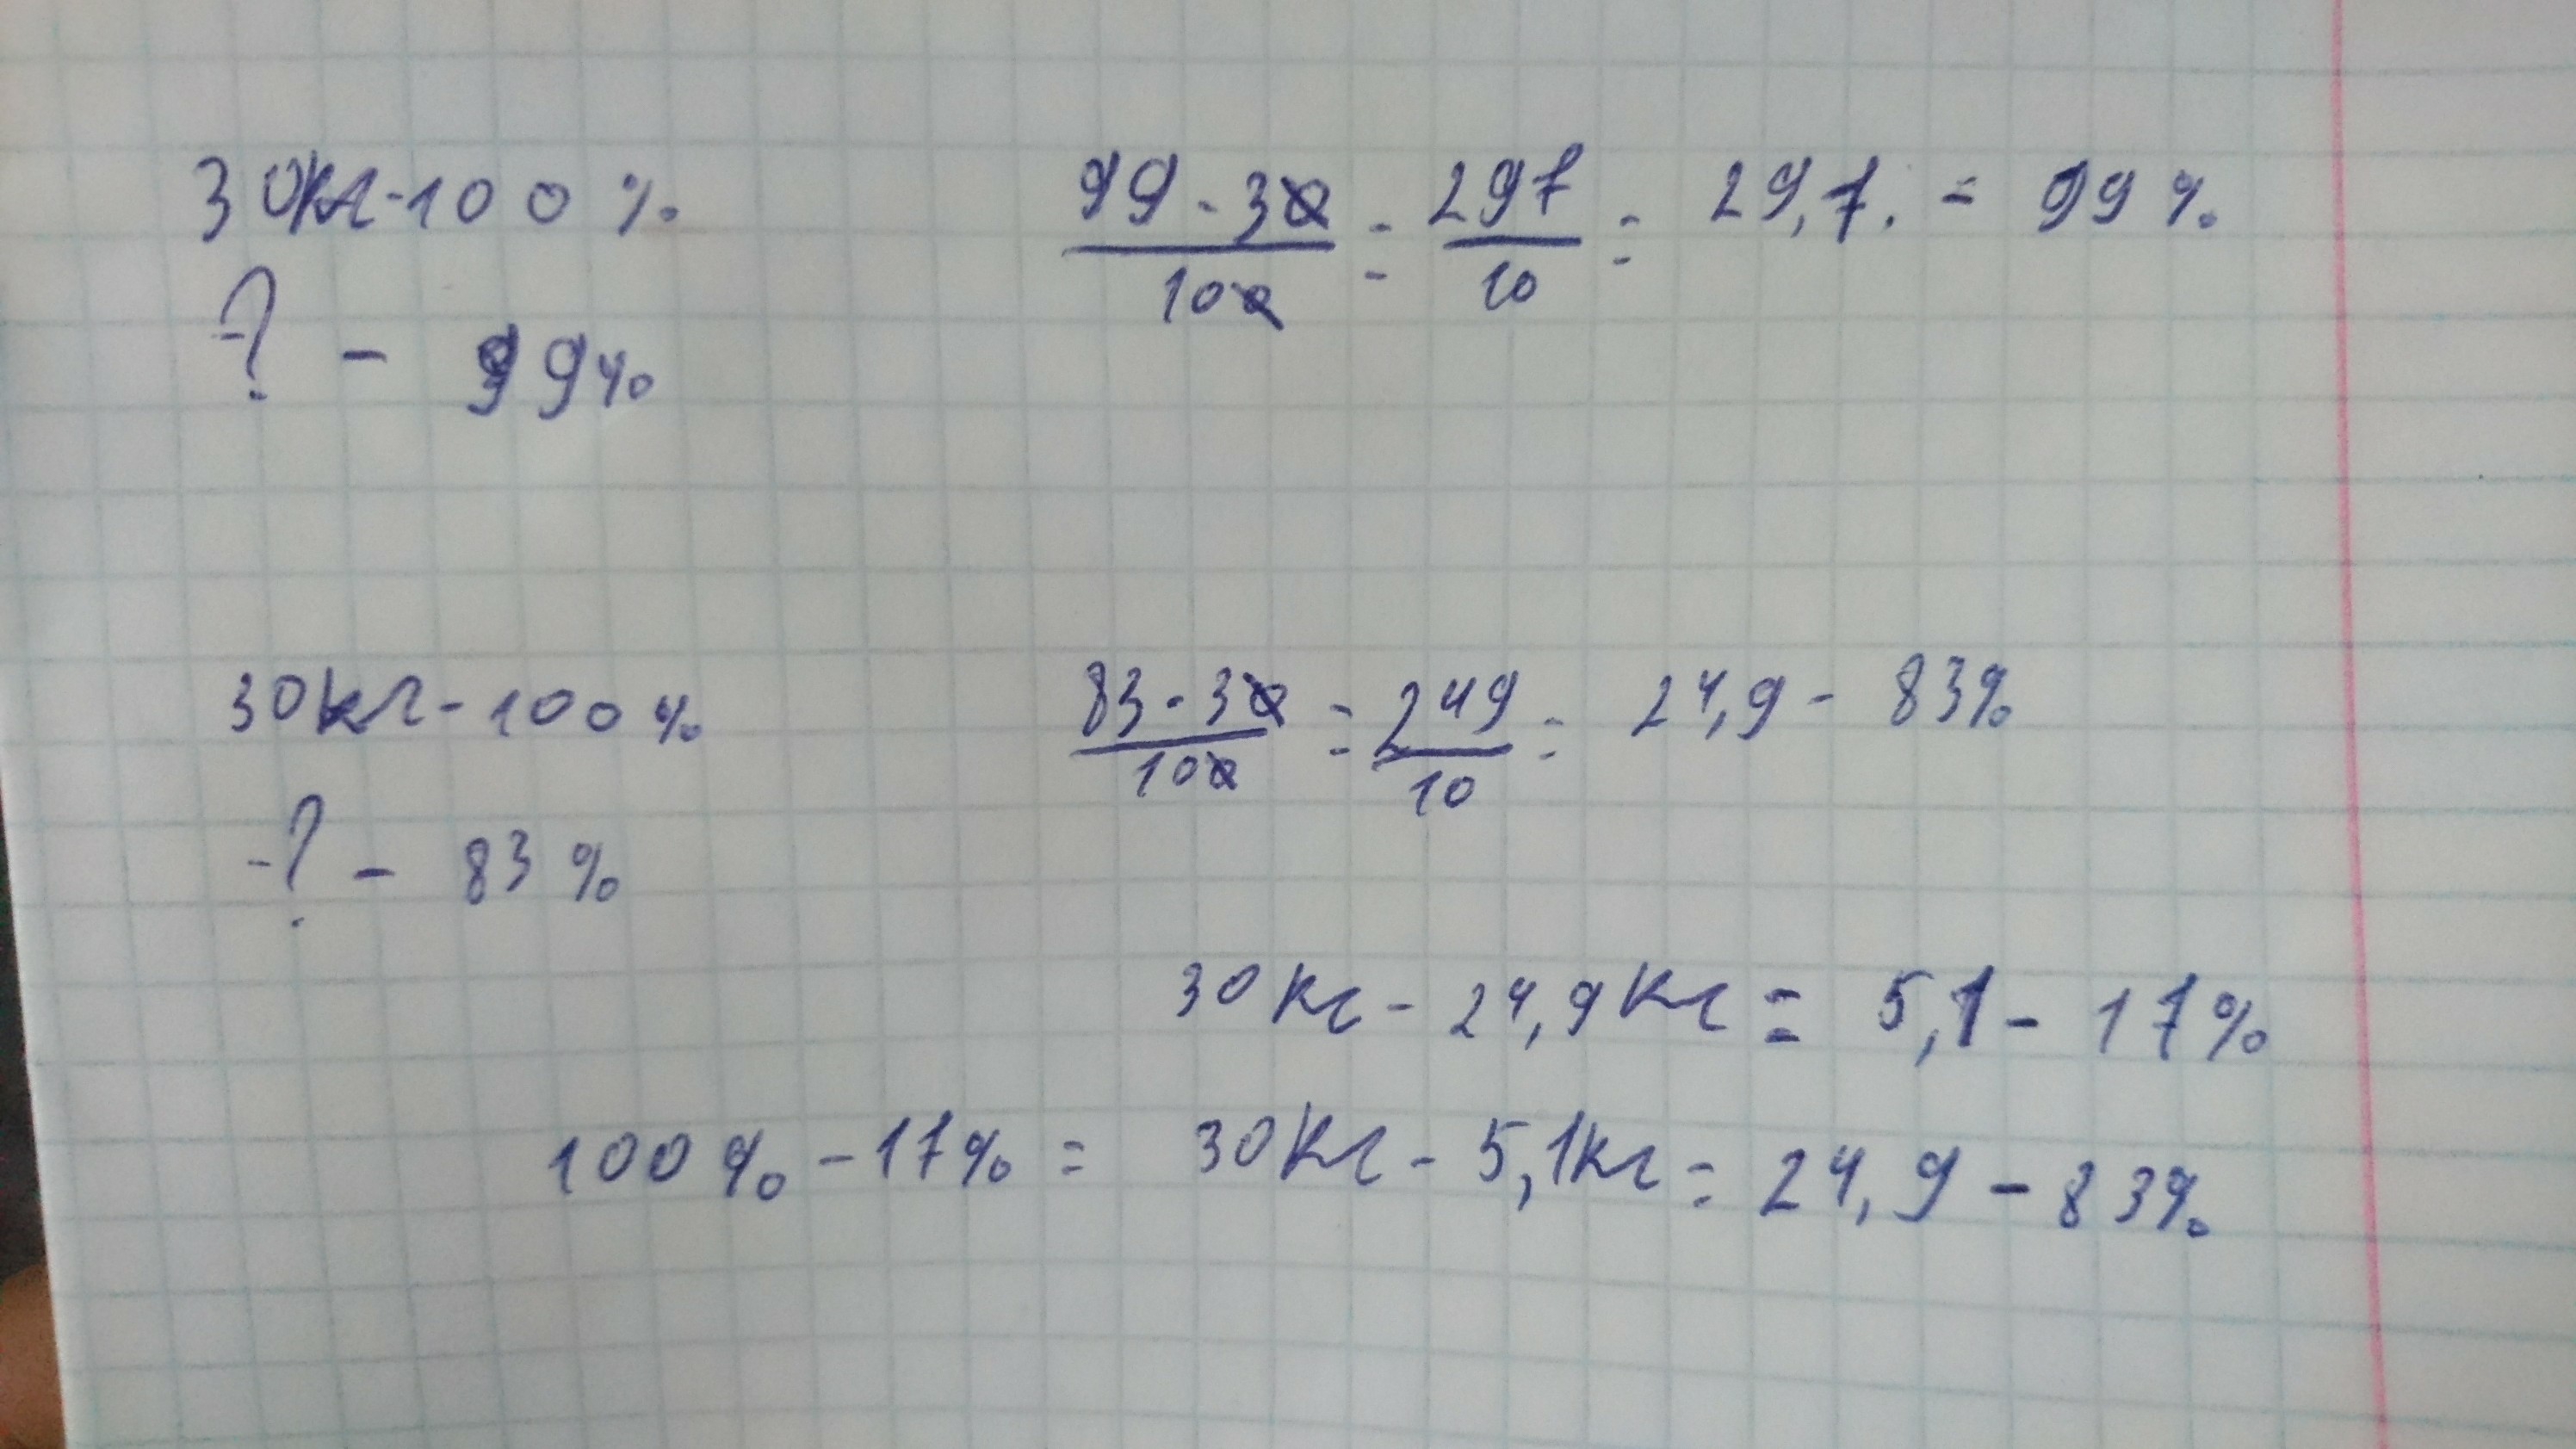 30кг-100%
99·30/100 = 297/10 = 29,7. = 99%
? - 99%
30кг-100%
83·30/100 = 249/10 = 24,9 - 83%
-? - 83%
30кг - 24,9кг = 5,1 - 17%
100% - 17% = 30кг - 5,1кг = 24,9 - 83%